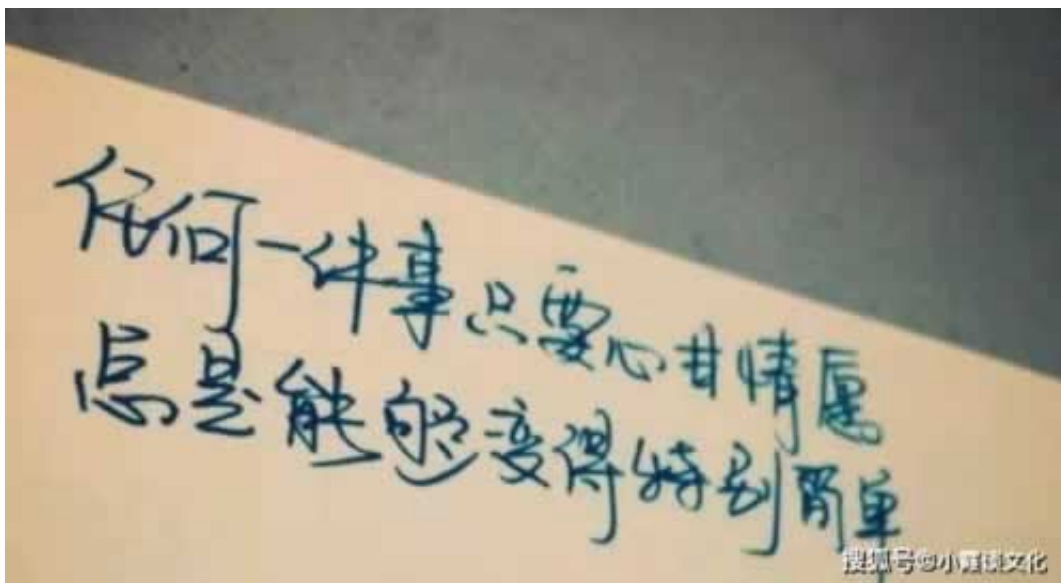 任何一件事只要心甘情愿
总是能够变得特别简单
搜狐号@小霞谈文化